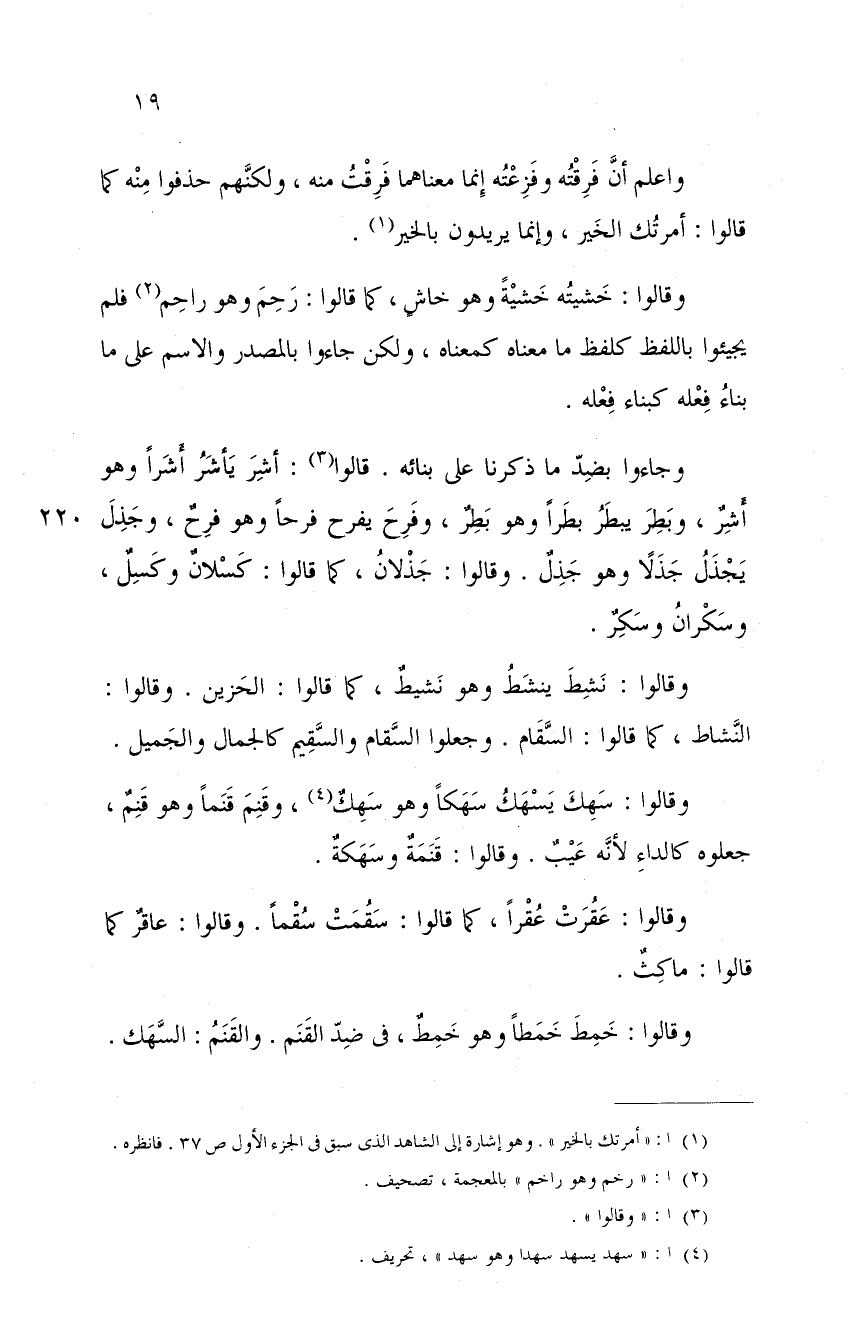 ١٩
واعلم أنَّ فَرِقْتُه وفَزِعْتُه إنما معناهما فَرِقْتُ منه ، ولكنَّهم حذفوا مِنْه كما
قالوا : أمرتُك الخَير ، وإنما يريدون بالخير(١) .
وقالوا : خَشيتُه خَشيْةً وهو خاشٍ ، كما قالوا : رَحِمَ وهو راحِم(٢) فلم
يجيئوا باللفظ كلفظ ما معناه كمعناه ، ولكن جاءوا بالمصدر والاسم على ما
بناءُ فِعْله كبناء فِعْله .
وجاءوا بضِدّ ما ذكرنا على بنائه . قالوا(٣) : أشِرَ يَأشَرُ أَشَراً وهو
أَشِرٌ ، وبَطِرَ يبطَرُ بطَراً وهو بَطِرٌ ، وفَرِحَ يفرح فرحاً وهو فرِحٌ ، وجَذِلَ ٢٢٠
يَجْذَلُ جَذَلًا وهو جَذِلٌ . وقالوا : جَذْلانُ ، كما قالوا : كَسْلانٌ وكَسِلٌ ،
وسَكْرانُ وسَكِرٌ .
وقالوا : نَشِطَ ينشَطُ وهو نَشيطٌ ، كما قالوا : الحَزين . وقالوا :
النَّشاط ، كما قالوا : السَّقَام . وجعلوا السَّقام والسَّقِيم كالجمال والجَميل .
وقالوا : سَهِكَ يَسْهَكُ سَهَكاً وهو سَهِكٌ(٤) ، وقَنِمَ قَنَماً وهو قَنِمٌ ،
جعلوه كالداءِ لأنَّه عَيْبٌ . وقالوا : قَنَمَةٌ وسَهَكةٌ .
وقالوا : عَقُرَتْ عُقْراً ، كما قالوا : سَقُمَتْ سُقْماً . وقالوا : عاقرٌ كما
قالوا : ماكِثٌ .
وقالوا : خَمِطَ خَمَطاً وهو خَمِطٌ ، فى ضِدّ القَنَم . والقَنَمُ : السَّهَك .
(١) ا : « أمرتك بالخير » . وهو إشارة إلى الشاهد الذى سبق فى الجزء الأول ص ٣٧ . فانظره .
(٢) ا : « رخم وهو راخم » بالمعجمة ، تصحيف .
(٣) ا : « وقالوا » .
(٤) ا : « سهد يسهد سهدا وهو سهد » ، تحريف .